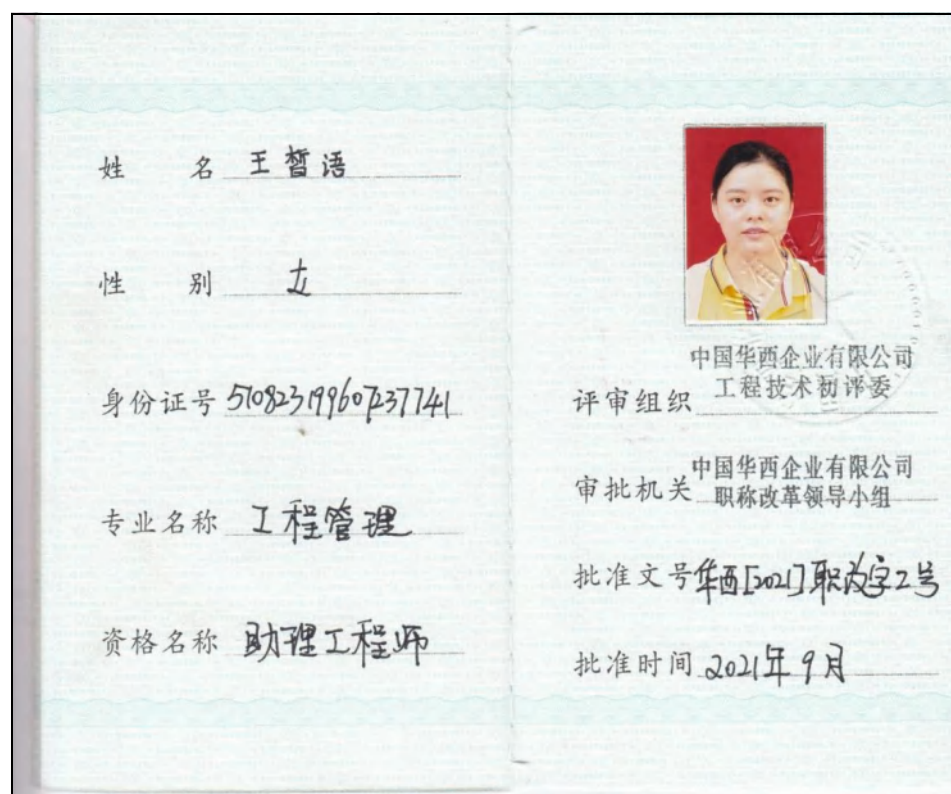 姓名 王晳语
性别 女
身份证号 510823199607237741
专业名称 工程管理
资格名称 助理工程师
中国华西企业有限公司
评审组织 工程技术初评委
中国华西企业有限公司
审批机关 职称改革领导小组
批准文号 华西[2021]职改字2号
批准时间 2021年9月